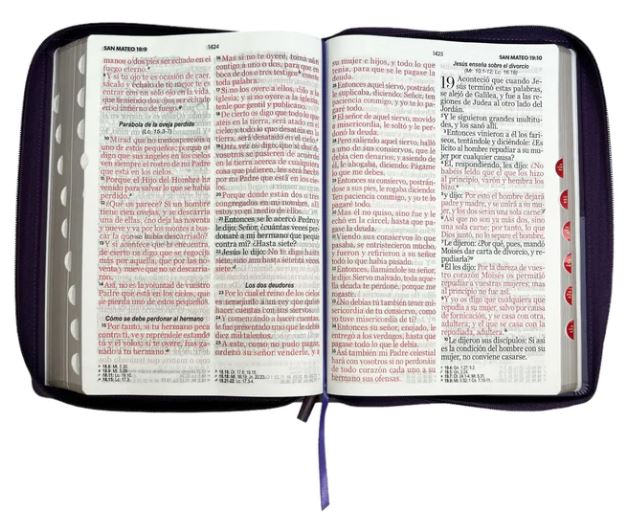 SAN MATEO 18:9
1424
manos o dos pies ser echado en el
fuego eterno.
Y si tu ojo te es ocasión de caer,
sácalo y échalo de ti; mejor te es
entrar con un solo ojo en la vida,
que teniendo dos ojos ser echado
en el infierno de fuego.
Parábola de la oveja perdida
(Lc. 15.3-7)
Mirad que no menospreciéis a
uno de estos pequeños; porque os
digo que sus ángeles en los cielos
ven siempre el rostro de mi Padre
que está en los cielos.
Porque el Hijo del Hombre ha
venido para salvar lo que se había
perdido.
¿Qué os parece? Si un hombre
tiene cien ovejas, y se descarría
una de ellas, ¿no deja las noventa
y nueve y va por los montes a bus-
car la que se había descarriado?
Y si acontece que la encuentra,
de cierto os digo que se regocija
más por aquella, que por las no-
venta y nueve que no se descarria-
ron.
Así, no es la voluntad de vuestro
Padre que está en los cielos, que
se pierda uno de estos pequeños.
Cómo se debe perdonar al hermano
Por tanto, si tu hermano peca
contra ti, ve y repréndele estando
tú y él solos; si te oyere, has ga-
nado a tu hermano.
Mas si no te oyere, toma aún
contigo a uno o dos, para que en
boca de dos o tres testigos conste
toda palabra.
Si no los oyere a ellos, dilo a la
iglesia; y si no oyere a la iglesia,
tenle por gentil y publicano.
De cierto os digo que todo lo que
atéis en la tierra, será atado en el
cielo; y todo lo que desatéis en la
tierra, será desatado en el cielo.
Otra vez os digo, que si dos de
vosotros se pusieren de acuerdo
en la tierra acerca de cualquiera
cosa que pidieren, les será hecho
por mi Padre que está en los cie-
los.
Porque donde están dos o tres
congregados en mi nombre, allí
estoy yo en medio de ellos.
Entonces se le acercó Pedro y
le dijo: Señor, ¿cuántas veces per-
donaré a mi hermano que peque
contra mí? ¿Hasta siete?
Jesús le dijo: No te digo hasta
siete, sino aun hasta setenta veces
siete.
Los dos deudores
Por lo cual el reino de los cielos
es semejante a un rey que quiso
hacer cuentas con sus siervos.
Y comenzando a hacer cuentas,
le fue presentado uno que le debía
diez mil talentos.
A éste, como no pudo pagar,
ordenó su señor venderle, y a
1425
SAN MATEO 19:10
su mujer e hijos, y todo lo que
tenía, para que se le pagase la
deuda.
Entonces aquel siervo, postrado,
le suplicaba, diciendo: Señor, ten
paciencia conmigo, y yo te lo pa-
garé todo.
El señor de aquel siervo, movido
a misericordia, le soltó y le per-
donó la deuda.
Pero saliendo aquel siervo, halló
a uno de sus consiervos, que le
debía cien denarios; y asiendo de
él, le ahogaba, diciendo: Págame
lo que me debes.
Entonces su consiervo, postrán-
dose a sus pies, le rogaba diciendo:
Ten paciencia conmigo, y yo te lo
pagaré todo.
Mas él no quiso, sino fue y le
echó en la cárcel, hasta que pa-
gase la deuda.
Viendo sus consiervos lo que
pasaba, se entristecieron mucho,
y fueron y refirieron a su señor
todo lo que había pasado.
Entonces, llamándole su señor,
le dijo: Siervo malvado, toda aque-
lla deuda te perdoné, porque me
rogaste.
¿No debías tú también tener mi-
sericordia de tu consiervo, como
yo tuve misericordia de ti?
Entonces su señor, enojado, le
entregó a los verdugos, hasta que
pagase todo lo que le debía.
Así también mi Padre celestial
hará con vosotros si no perdonáis
de todo corazón cada uno a su
hermano sus ofensas.
Jesús enseña sobre el divorcio
(Mr. 10.1-12; Lc. 16.18)
19 Aconteció que cuando Je-
sús terminó estas palabras,
se alejó de Galilea, y fue a las re-
giones de Judea al otro lado del
Jordán.
Y le siguieron grandes multitu-
des, y los sanó allí.
Entonces vinieron a él los fari-
seos, tentándole y diciéndole: ¿Es
lícito al hombre repudiar a su mu-
jer por cualquier causa?
Él, respondiendo, les dijo: ¿No
habéis leído que el que los hizo
al principio, varón y hembra los
hizo,
y dijo: Por esto el hombre dejará
padre y madre, y se unirá a su mu-
jer, y los dos serán una sola carne?
Así que no son ya más dos, sino
una sola carne; por tanto, lo que
Dios juntó, no lo separe el hombre.
Le dijeron: ¿Por qué, pues, mandó
Moisés dar carta de divorcio, y re-
pudiarla?
Él les dijo: Por la dureza de vues-
tro corazón Moisés os permitió
repudiar a vuestras mujeres; mas
al principio no fue así.
Y yo os digo que cualquiera que
repudia a su mujer, salvo por causa
de fornicación, y se casa con otra,
adultera; y el que se casa con la
repudiada, adultera.
Le dijeron sus discípulos: Si así
es la condición del hombre con su
mujer, no conviene casarse.